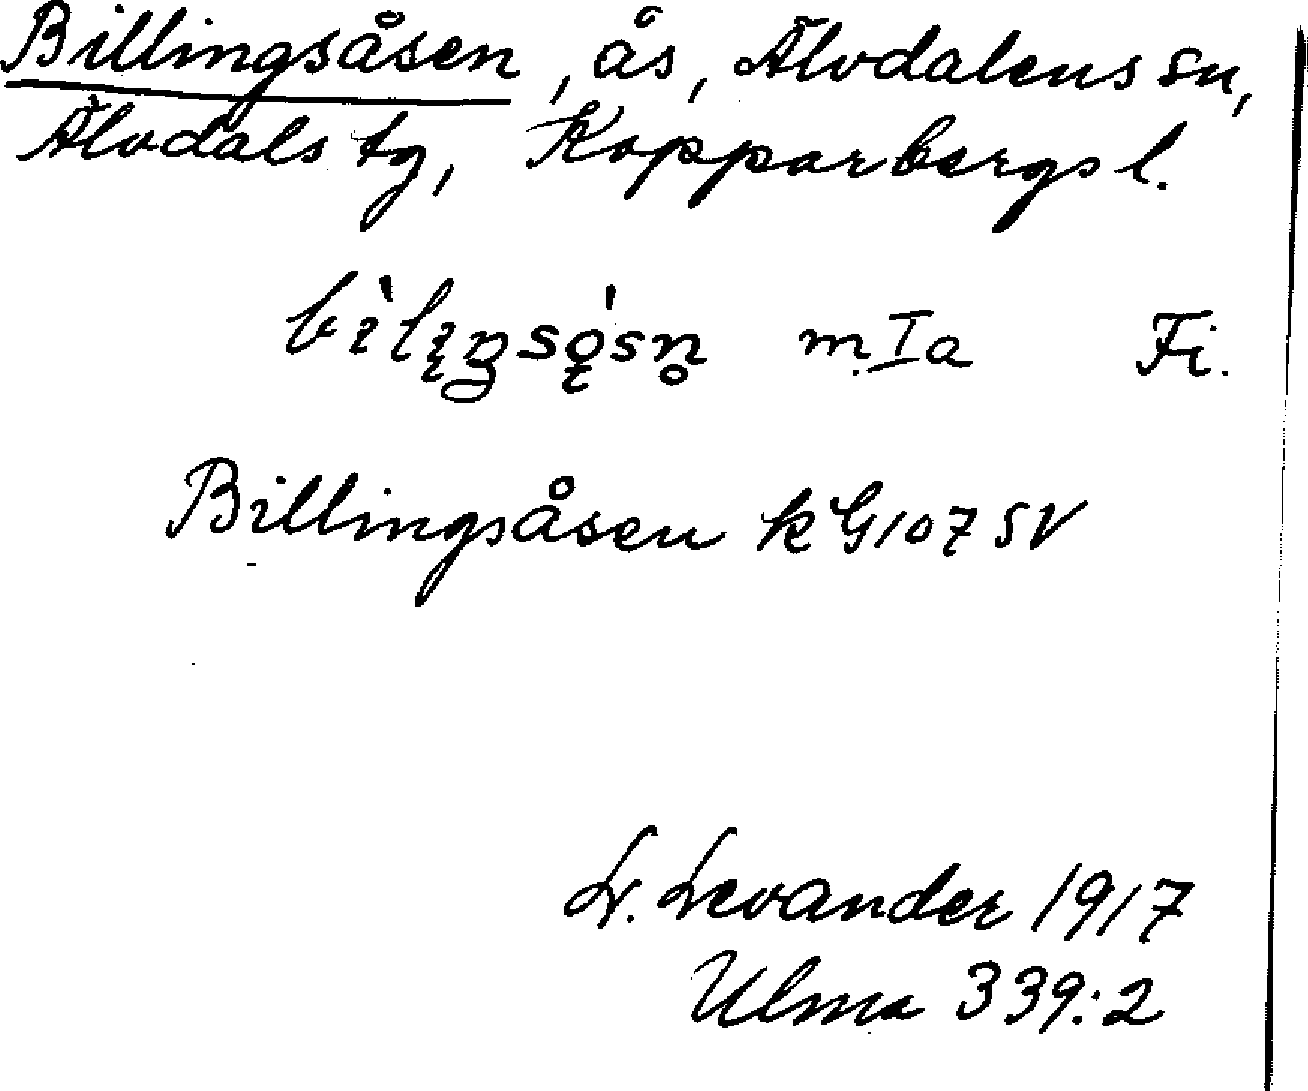 Billingsåsen, ås, Älvdalens sn,
Älvdals tg, Kopparbergs l.
m.Ia Fi.
Billingsåsen k G107 SV
L. Levander 1917
Ulma 339:2